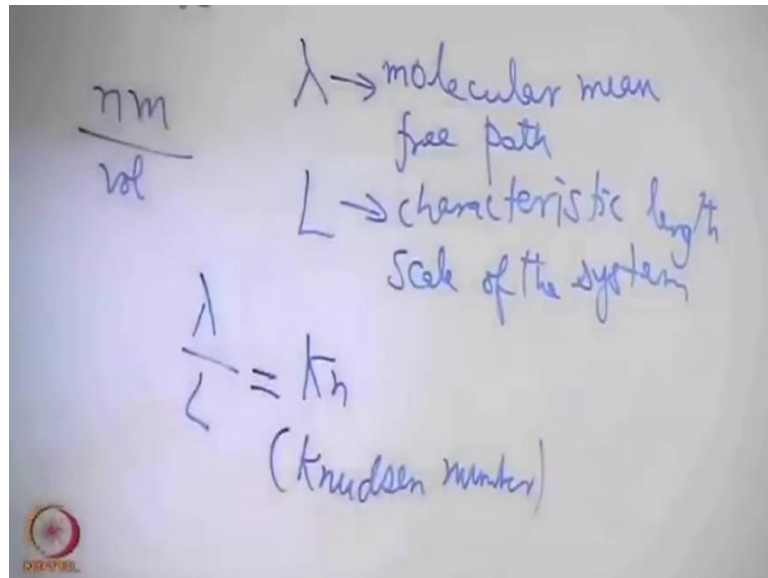 nm
vol
λ → molecular mean
free path
L → characteristic length
scale of the system
λ
L
= Kn
(Knudsen number)
NPTEL